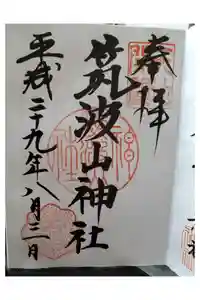 奉拝
筑波山神社
平成二十九年八月二日